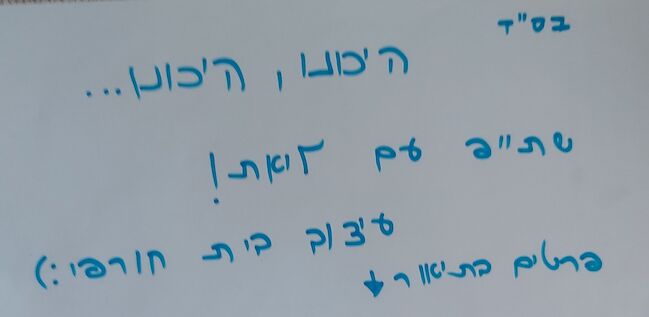 בס"ד
היכונו, היכונו...
שת"פ עם ליאת!
עיצוב בית חורפי :)
פרטים בתיאור ↓